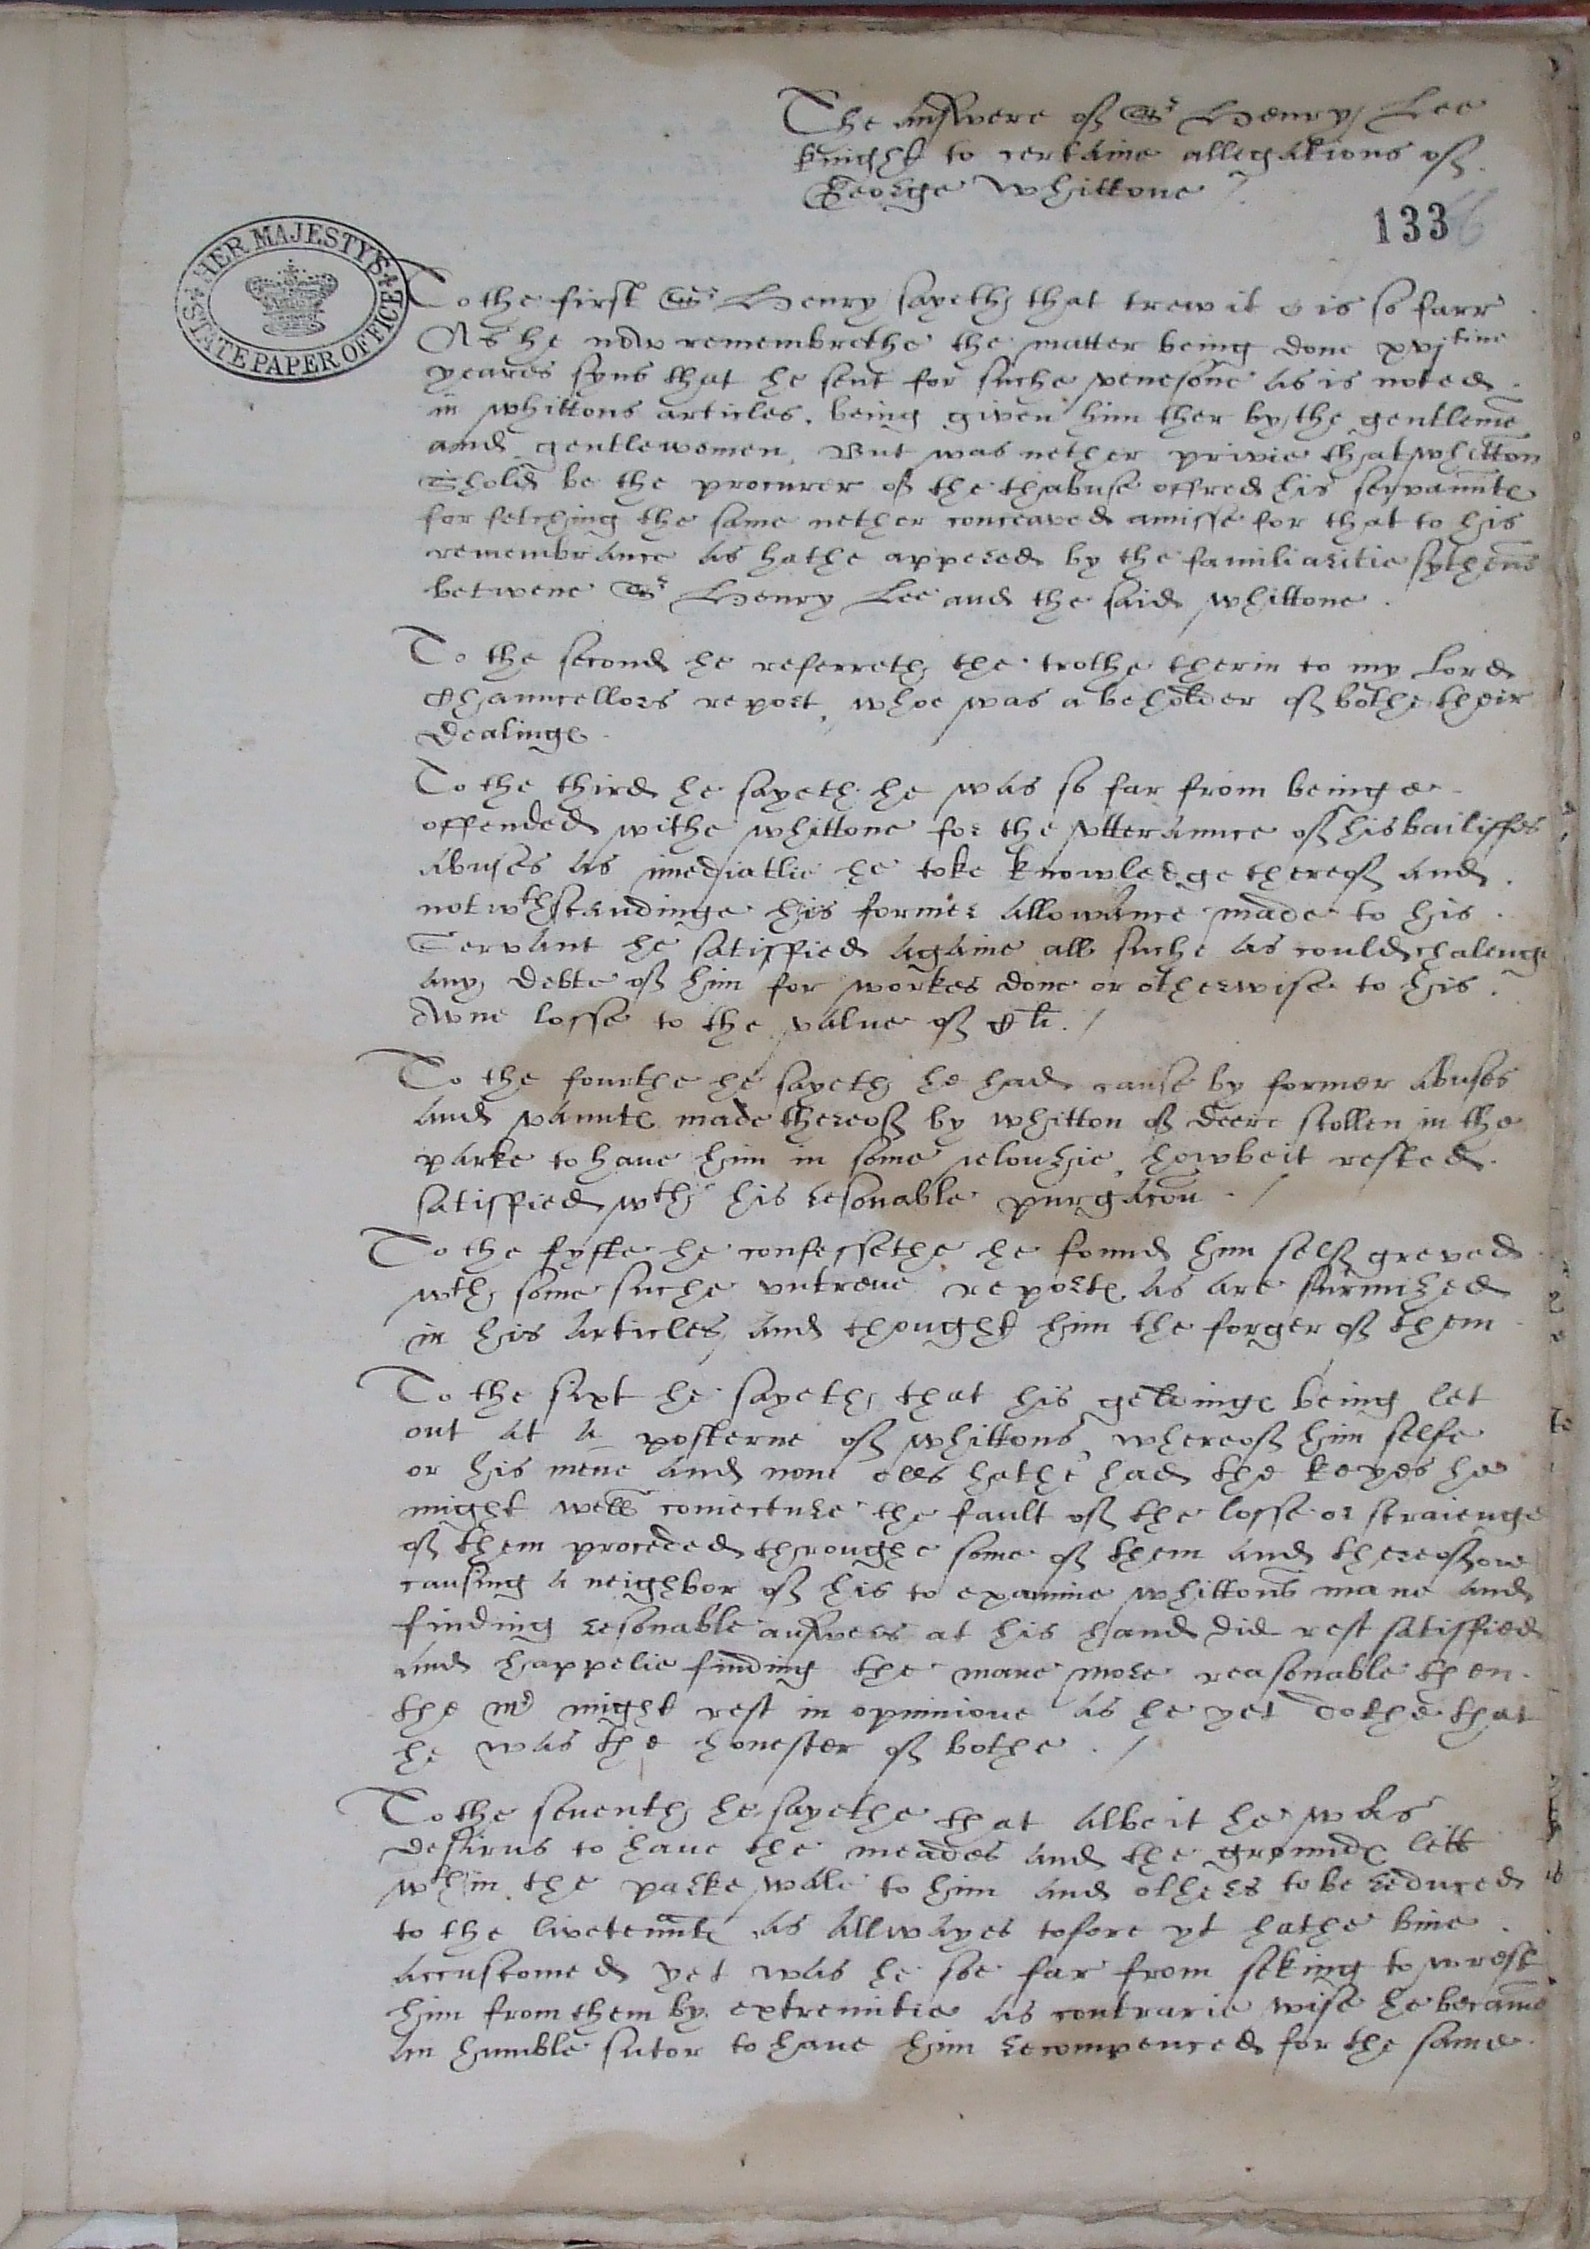 The answere of Sr Henry Lee
knight to certaine allegations of
George Whittone
133
HER MAJESTY'S STATE PAPER OFFICE
To the first Sr Henry sayeth that trew it is so farr
As he now remembrethe the matter being done xvj tine
yeares syns that he sent for suche venesone as is noted
in Whittons articles, being given him ther by the gentleme
and gentlewomen, But was nether privie that whitton
Shold be the procurer of the thabuse offred his servaunte
for fetching the same nether conceaved amisse for that to his
remembrance as hathe appered by the familiaritie sythens
betwene Sr Henry Lee and the said whittone .
To the second he referreth the trothe therin to my Lord
Chauncellors report, whoe was a beholder of bothe their
dealinges
To the third he sayeth he was so far from beinge
offended withe whittone for the utteraunce of his bailiffes
Abuses as imediatlie he toke knowledge thereof and
notwthstandinge his former allowance made to his
Servant he satisfied againe all suche as could chalenge
any debte of him for workes done or otherwise to his
Awne losse to the value of C li . /
To the fourthe he sayeth he had cause by former abuses
and vauntes made thereof by whitton of deere stollen in the
parke to have him in some jelouzie, howbeit rested
satisfied wth his resonable purgacon . /
To the fyfte he confessethe he found him self greved
wth some suche untreue reportes as are surmized
in his articles, and thought him the forger of them
To the sixt he sayeth, that his geldinges being let
out at a posterne of whittons, whereof him selfe
or his mene and none elles hathe had the keyes he
might well coniecture the fault of the losse or straienge
of them proceded throughe some of them and thereof one
causing a neighbor of his to examine whittons mane and
finding resonable answers at his hand did rest satisfied
and happelie finding the mane more reasonable then
the mr might rest in opinnione as he yet dothe that
he was the honester of bothe . /
To the seventh he sayethe that albeit he was
desirus to have the meades and the groundes lett
wthin the parke wale to him and others to be reduced
to the livetennts as allwayes tofore yt hathe bine
accustomed yet was he soe far from seking to wrest
him from them by extremitie as contrarie wise he became
an humble sutor to have him recompenced for the same